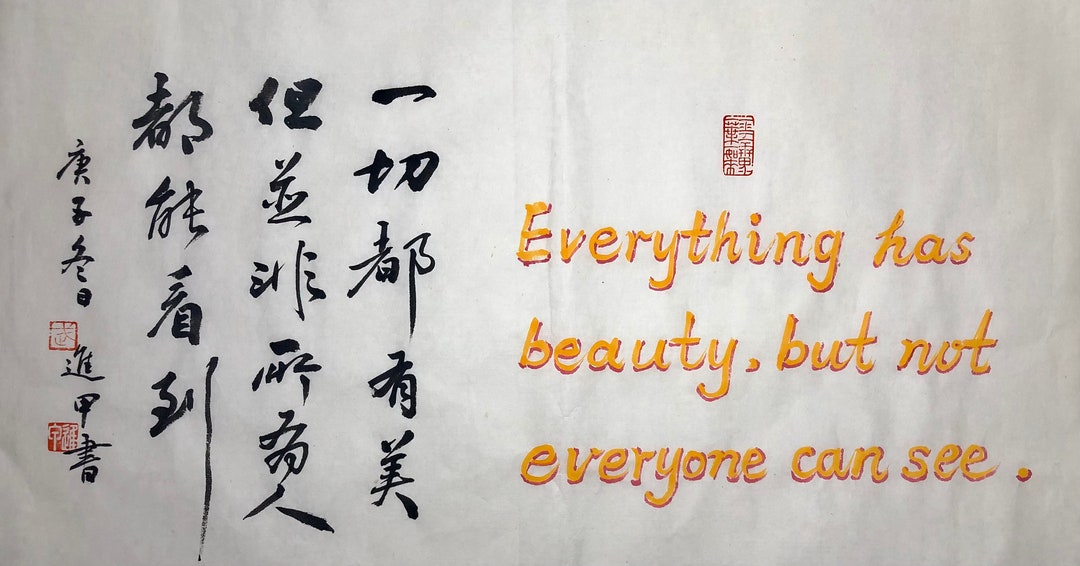 一切都有美
但並非所有人
都能看到
庚子冬日
進甲書
Everything has
beauty, but not
everyone can see.